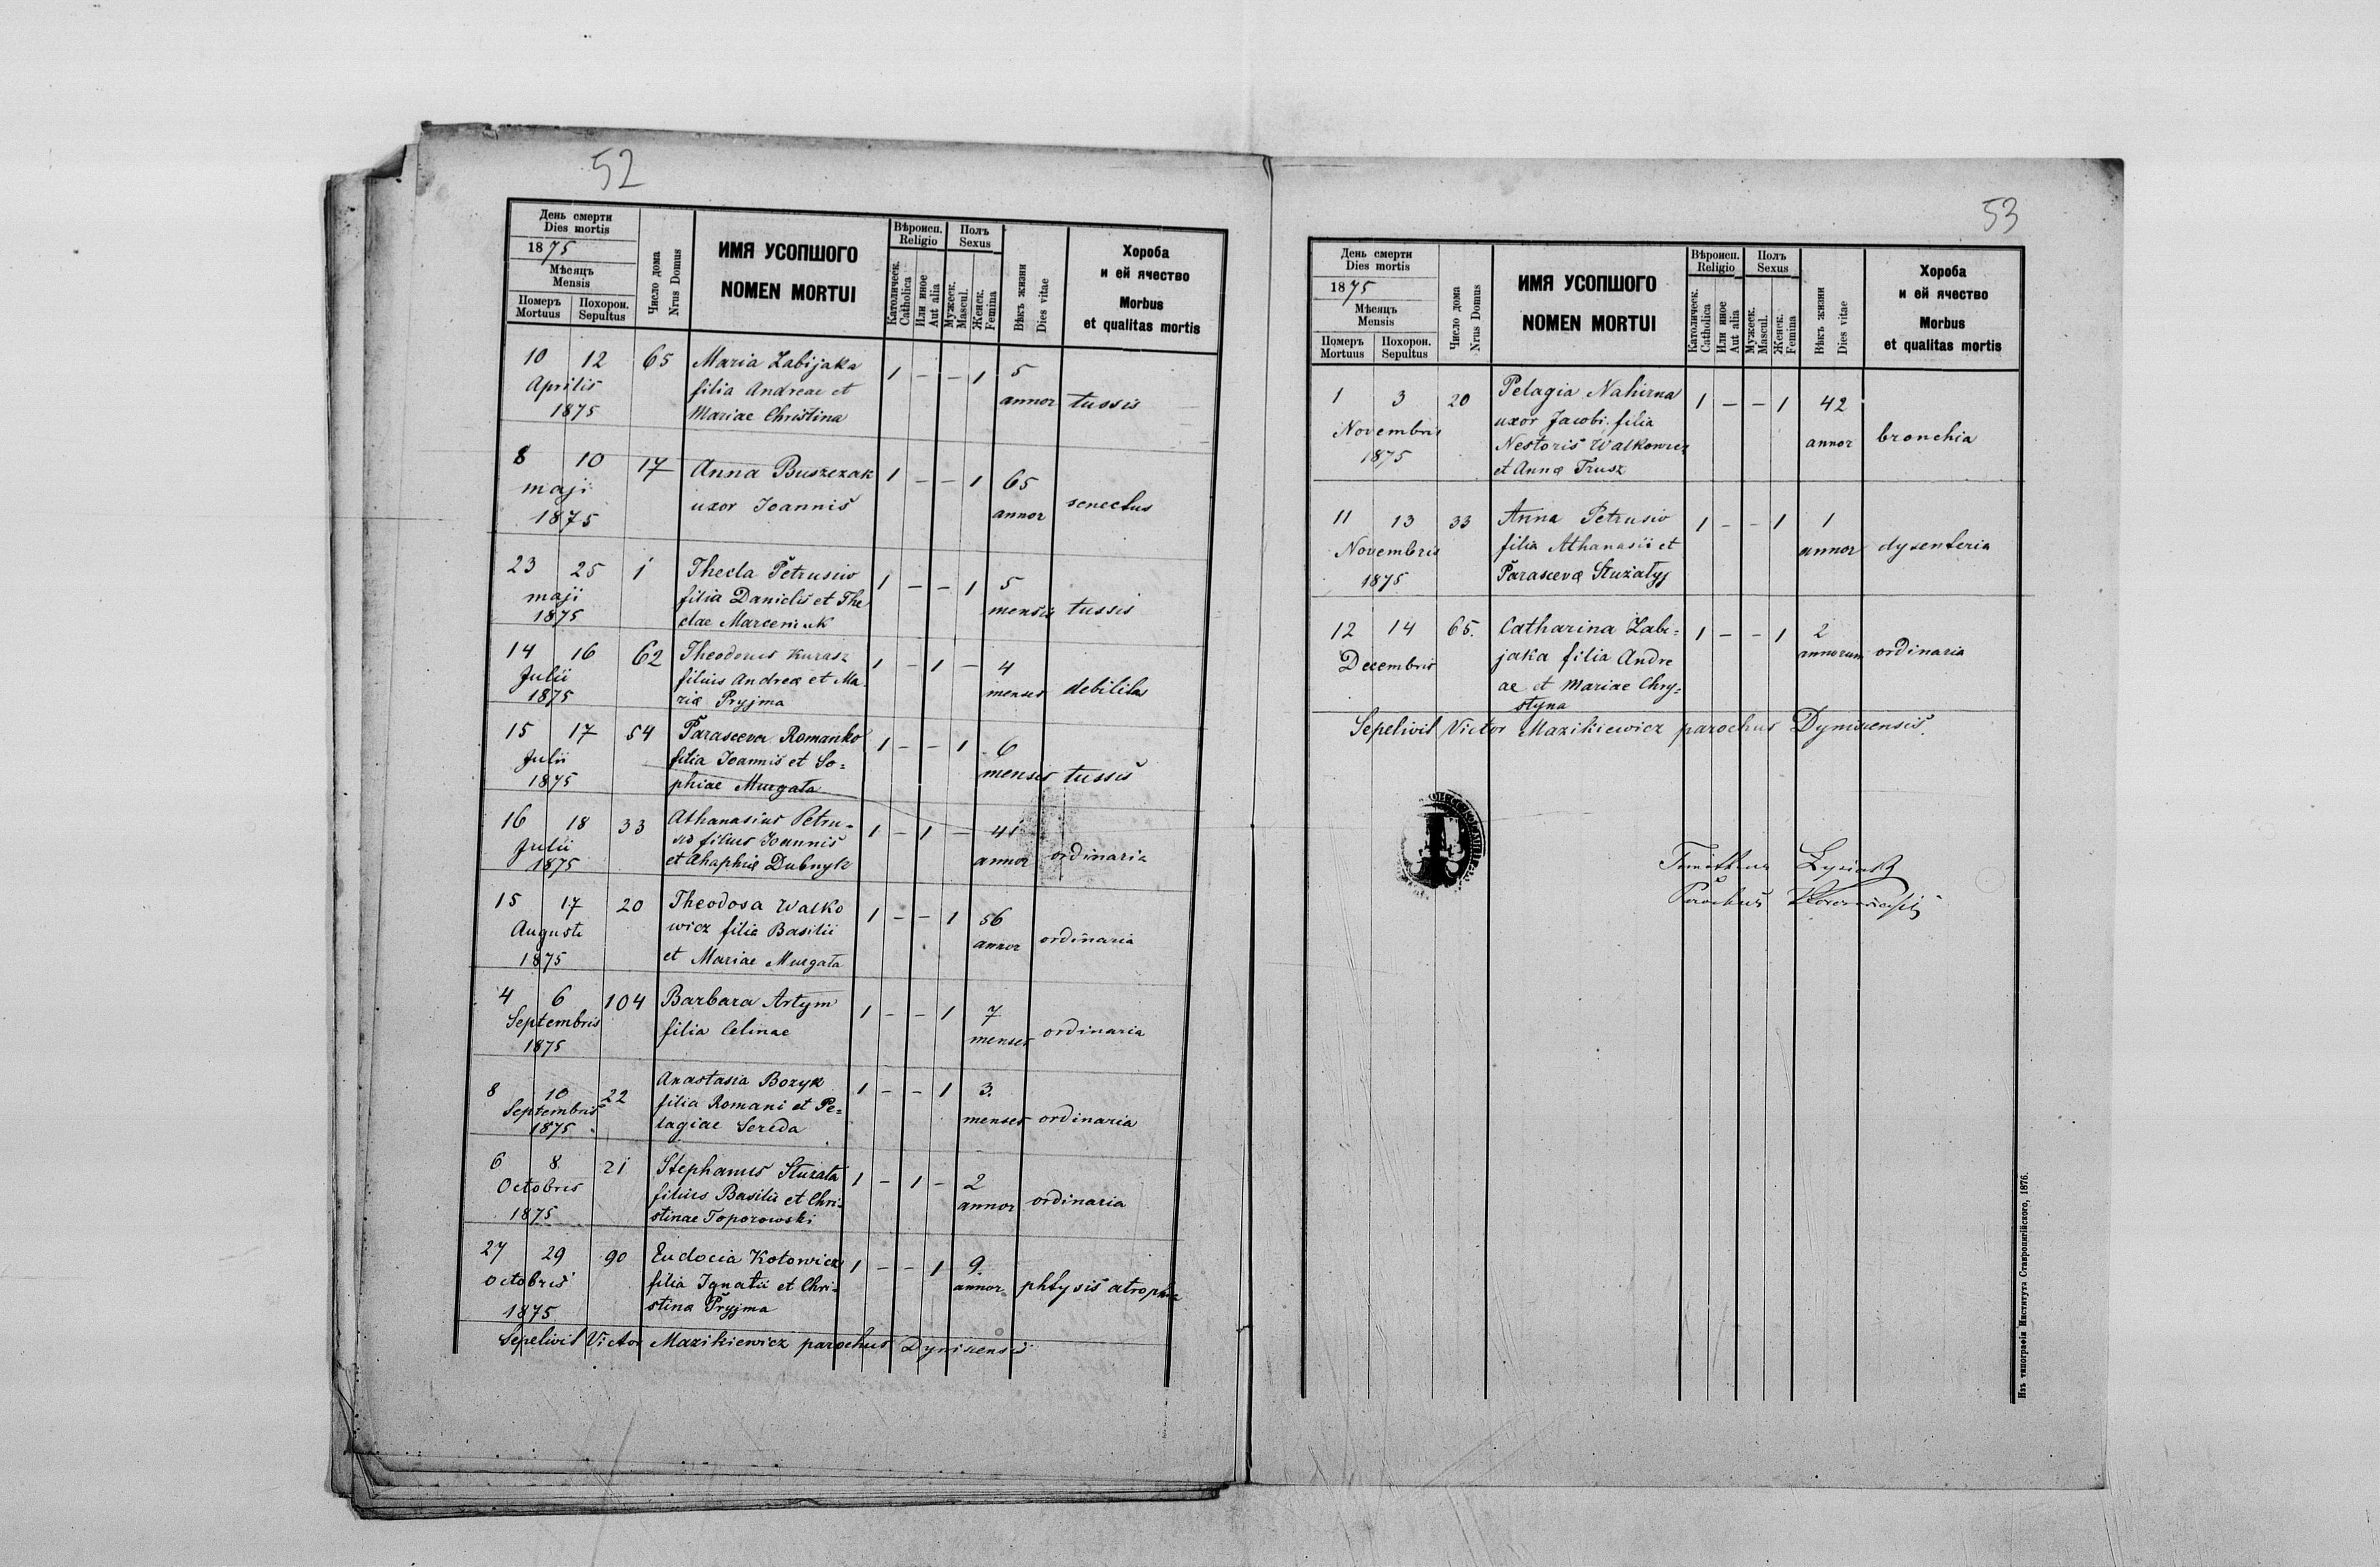 52
День смерти
Dies mortis
1875
Мѣсяцъ
Mensis
Померъ
Mortuus
Похорон.
Sepultus
Число дома
Nrus Domus
ИМЯ УСОПШОГО
NOMEN MORTUI
Вѣроисп.
Religio
Католическ.
Catholica
Или иное
Aut alia
Полъ
Sexus
Мужеск.
Mascul.
Женск.
Femina
Вѣкъ жизни
Dies vitae
Хороба
и ей ячество
Morbus
et qualitas mortis
10 12 65 Maria Zabijaka 1 – – 1 5
Aprilis filia Andreae et annor tussis
1875 Mariae Christina
8 10 17 Anna Buszczak 1 – – 1 65
maji uxor Joannis annor senectus
1875
23 25 1 Thecla Petrusiw 1 – – 1 5
maji filia Danielis et The menses tussis
1875 clae Marceniuk
14 16 62 Theodorus Kurasz 1 – 1 – 4
Julii filius Andreæ et Ma menses debilitas
1875 riæ Pryjma
15 17 54 Parasceva Romanko 1 – – 1 6
Julii filia Joannis et So= menses tussis
1875 phiae Murgata
16 18 33 Athanasius Petru- 1 – 1 – 41
Julii filius Joannis annor ordinaria
1875 et Ahaphiæ Dubnyk
15 17 20 Theodosa Walko 1 – – 1 56
Augusti wicz filia Basilii annor ordinaria
1875 et Mariae Murgata
4 6 104 Barbara Artym 1 – – 1 7
Septembris filia Celinae menses ordinaria
1875
8 10 22 Anastasia Bozyk 1 – – 1 3.
Septembris filia Romani et Pe= menses ordinaria
1875 lagiae Sereda
6 8 21 Stephanus Sturata 1 – 1 – 2
Octobris filius Basilii et Chri- annor ordinaria
1875 stinae Toporowski
27 29 90 Eudocia Kotowicz 1 – – 1 9.
Octobris filia Ignatii et Chri- annor phtysis
1875 stinæ Pryjma
Sepelivit Victor Mazikiewicz parochus
53
День смерти
Dies mortis
1875
Мѣсяцъ
Mensis
Померъ
Mortuus
Похорон.
Sepultus
Число дома
Nrus Domus
ИМЯ УСОПШОГО
NOMEN MORTUI
Вѣроисп.
Religio
Католическ.
Catholica
Или иное
Aut alia
Полъ
Sexus
Мужеск.
Mascul.
Женск.
Femina
Вѣкъ жизни
Dies vitae
Хороба
и ей ячество
Morbus
et qualitas mortis
1 3 20 Pelagia Nahirna 1 – – 1 42
Novembris uxor Jacobi filia annor bronchia
1875 Nestoris Walkowicz
et Annæ Trusz
11 13 33 Anna Petrusiw 1 – – 1 1
Novembris filia Athanasii et annor dysenteria
1875 Parascevæ
12 14 65. Catharina Zabi= 1 – – 1 2
Decembris jaka filia Andre annorum ordinaria
ae et Mariae Chry=
styna
Sepelivit Victor Mazikiewicz parochus
Parochus
Изъ типографіи Института Ставропигійского, 1876.